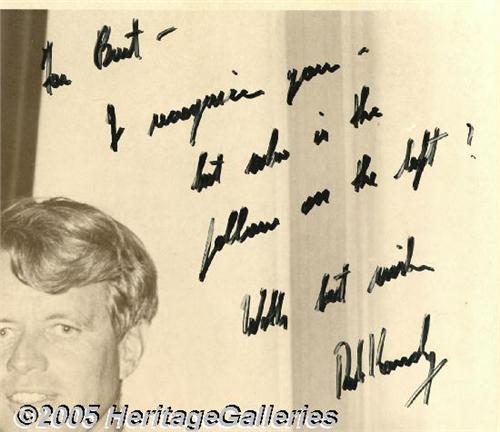 For Burt –
I recognize you –
but who is the
fellow on the left?
With best wishes
Bob Kennedy
©2005 HeritageGalleries